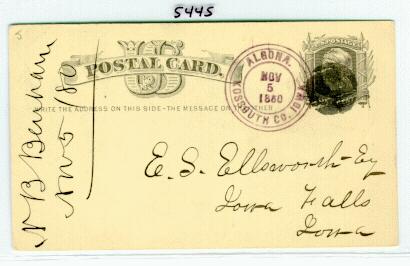 5445
U S
POSTAL CARD.
WRITE THE ADDRESS ON THIS SIDE - THE MESSAGE ON THE OTHER
ALGONA,
NOV
5
1880
KOSSUTH CO. IOWA
POSTAGE
N B Benham
Nov 5 '80
E. S. Ellsworth Esq
Iowa Falls
Iowa